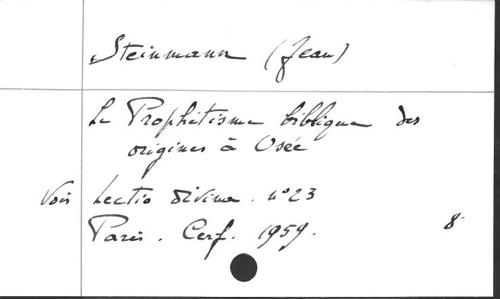 Steinmann (Jean)
Le Prophétisme biblique des
origines à Osée
Voir Lectio divina. n° 23
Paris. Cerf. 1959. 8°